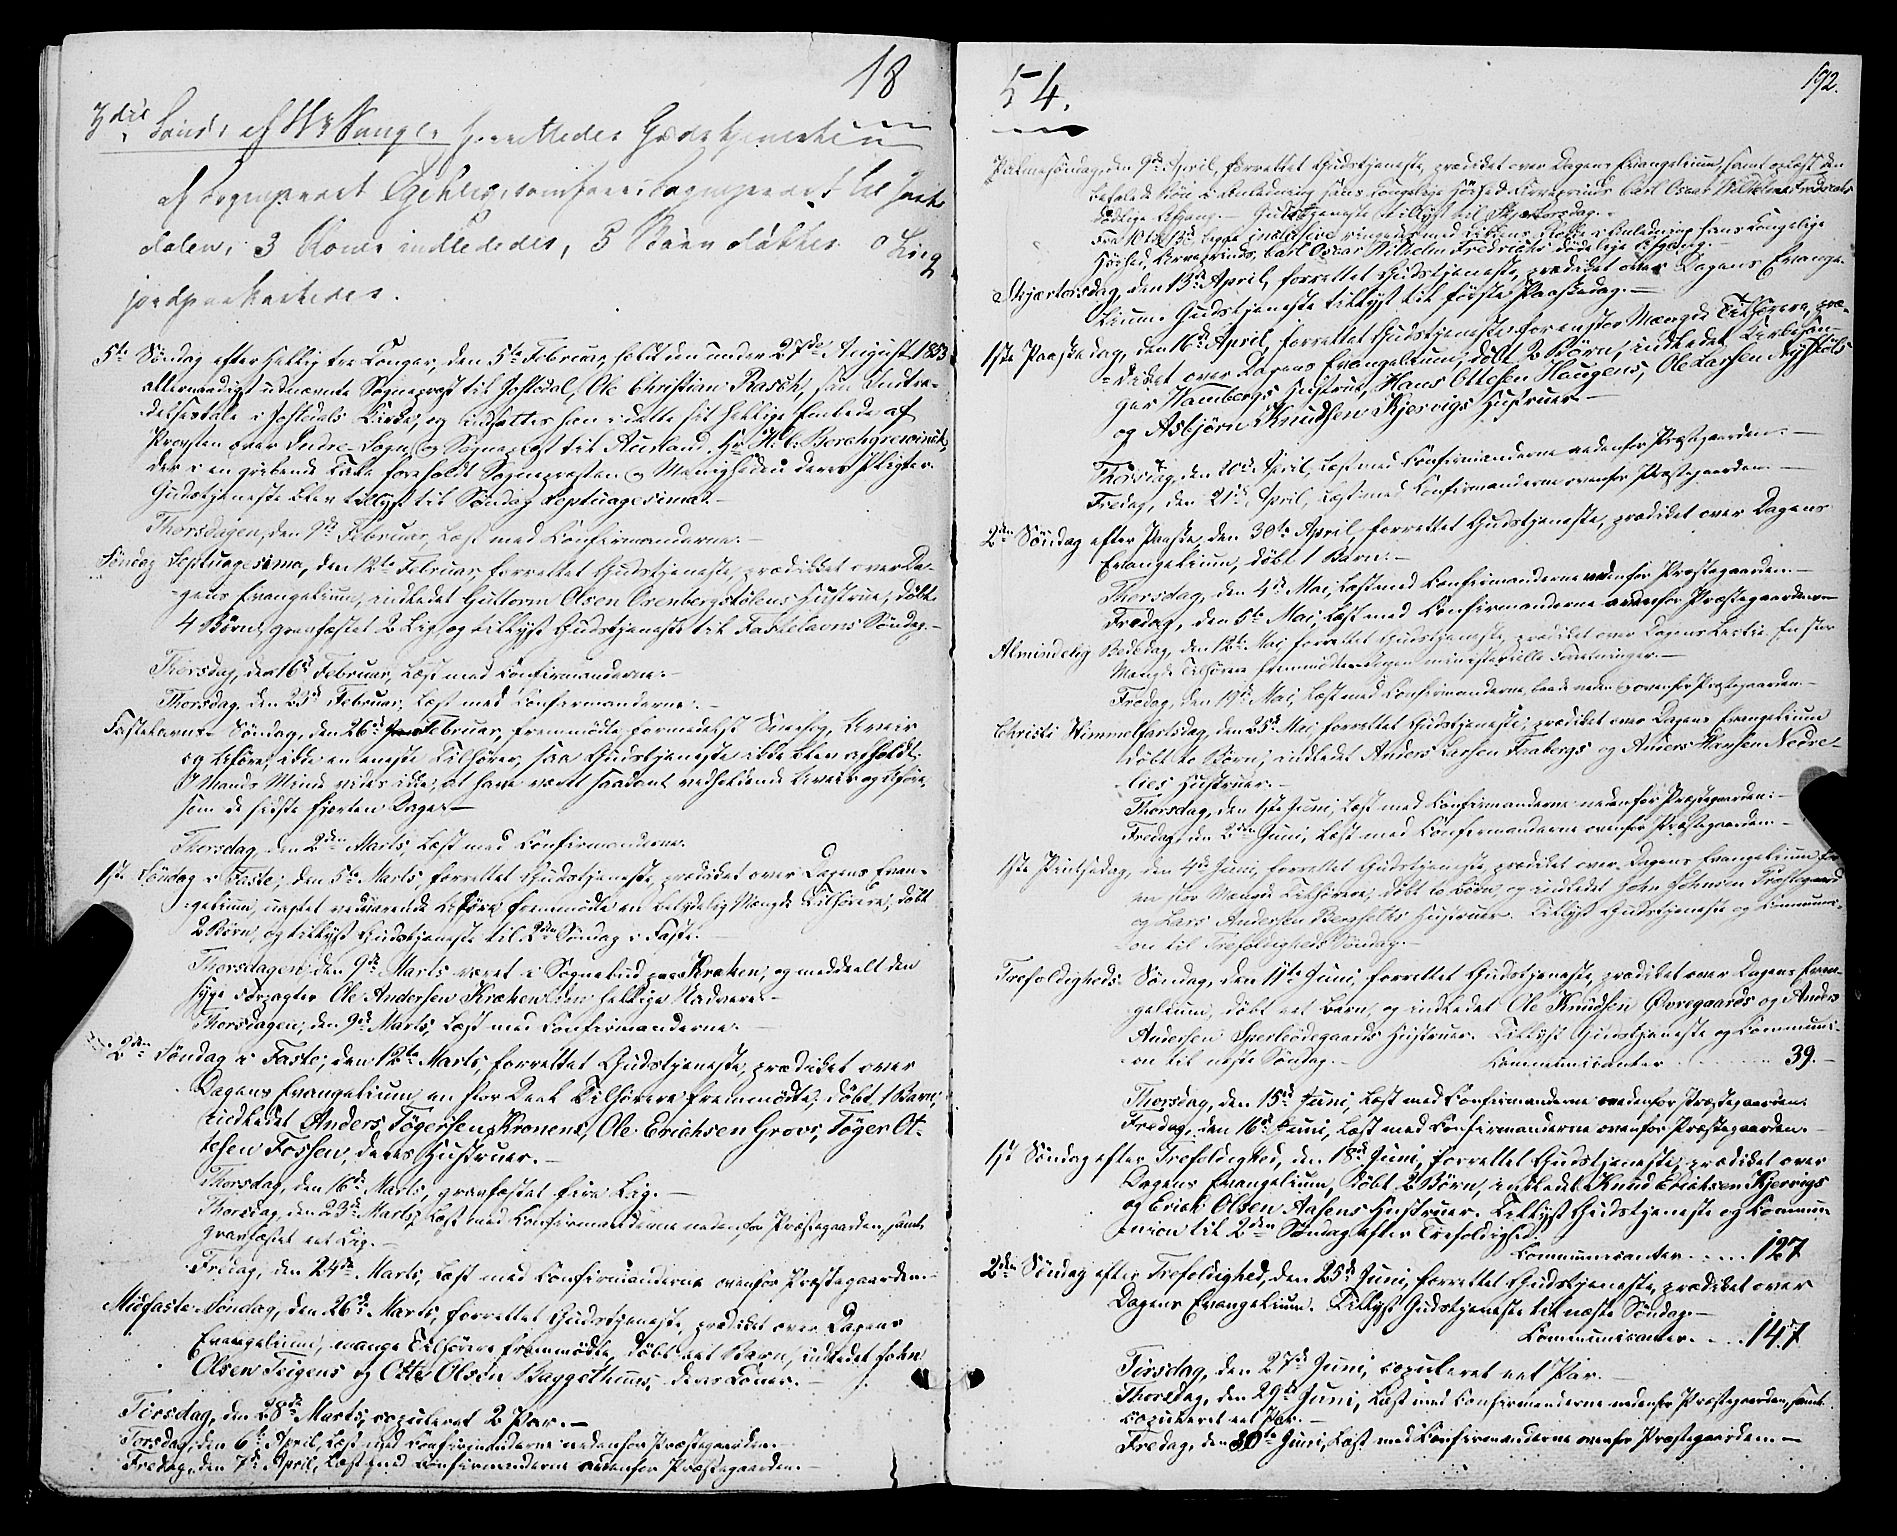 18
3die Sønd: ef. H: 3 Konger forrettedes Gudstjenesten
af Sogneprest constitueret Sogneprest til Joste
dalen, 3 Koner indlededes, 5 Børn døbtes 0 Liig
jordpaakastedes.
5te Søndag efter Hellig tre Konger, den 5te Februar, holdt den under 27de August 1853
allernaadigst udnævnte Sognepræst til Jostedal, Ole Christian Rasch, sin Indtræ-
delsestale i Jostedals Kirke, og indsattes han i dette sit hellige Embede af
Provsten over Indre Sogn og Sognepræst til Aurland, Hr. H. C. Borchgrewinck,
der i en gribende Tale foreholdt Sognepræsten og Menigheden deres Pligter.
Gudstjeneste blev tillyst til Søndag Septuagesima.
Thorsdagen, den 9de Februar, læst med Confirmanderne.
Søndag Septuagesima, den 12te Februar, forrettet Gudstjeneste, prædiket over Da-
gens Evangelium, indledet Guttorm Olsen Ormbergstølens Hustrue, døbt
4 Børn, gravfæstet 2 Lig og tillyst Gudstjeneste til Fastelavns Søndag.
Thorsdag, den 16de Februar, læst med Confirmanderne.
Thorsdag, den 23de Februar, læst med Confirmanderne.
Fastelavns Søndag, den 26de Februar, fremmødte formedelst Sneefog, Uveir
og Uføre, ikke en eneste Tilhører, saa Gudstjeneste ikke blev afholdt.
I Mands Minde vides ikke, at have været saadant vedholdende Uveir og Uføre,
som de sidste fjorten Dage.
Thorsdag, den 2den Marts, læst med Confirmanderne.
1ste Søndag i Faste, den 5te Marts, forrettet Gudstjeneste, prædiket over Dagens Evan-
gelium, uagtet vedvarende Uføre fremmødte en betydelig Mængde Tilhørere, døbt
2 Børn, og tillyst Gudstjeneste til 2den Søndag i Faste.
Thorsdagen, den 9de Marts været i Sognebud paa Kroken, og meddeelt den
syge Ole Andersen Kroken den hellige Nadvere.
Thorsdagen, den 9de Marts, læst med Confirmanderne.
2den Søndag i Faste, den 12te Marts, forrettet Gudstjeneste, prædiket over
Dagens Evangelium, en stor Deel Tilhørere fremmødte, døbt 1 Barn,
indledet Anders Tøgersen Kronens, Ole Erichsen Grovs, Tøger Ot-
tesen Fossen, deres Hustruer.
Thorsdag, den 16de Marts, gravfæstet fire Lig.
Thorsdag, den 23de Marts, læst med Confirmanderne nedenfor Præstegaarden, samt
gravfæstet eet Lig.
Fredag, den 24de Marts, læst med Confirmanderne ovenfor Præstegaarden.
Midfaste-Søndag, den 26de Marts, forrettet Gudstjeneste, prædiket over Dagens
Evangelium, mange Tilhørere fremmødte, døbt eet Barn, indledet John
Olsen Teigens og Otte Olsen Bggethuns, deres Koner.
Tirsdag, den 28de Marts, copuleret 2 Par.
Torsdag, den 6te April, læst med Confirmanderne nedenfor Præstegaarden.
Fredag, den 7de April, læst med Confirmanderne ovenfor Præstegaarden.
54.
192.
Palmesøndag, den 9de April, forrettet Gudstjeneste, prædiket over Dagens Evangelium, samt oplæst den
befalede Bøn i Anledning Hans Kongelige Høihed Arveprinds Carl Oscar Wilhelm Fredriks
dødelige Afgang. Gudstjeneste tillyst til Skjærtorsdag.
Fra 10de til 13de begge inclusive ringedes med Kirkens Klokke i Anledning Hans Kongelige
Høihed, Arveprinds, Carl Oscar Wilhelm Fredricks dødelige Afgang.
Skjærtorsdag, den 13de April, forrettet Gudstjeneste, prædiket over Dagens Evange-
lium. Gudstjeneste tillyst til første Paaskedag.
1ste Paaskedag, den 16de April, forrettet Gudstjeneste for en stor Mængde Tilhørere, præ-
diket over Dagens Evangelium, døbt 2 Børn, indledet Kirkesan-
ger Hambergs Hustrue, Hans Ottesen Haugens, Ole Larsen Nystøls
og Asbjørn Knudsen Kjervigs Hustruer.
Thorsdag, den 20de April, læst med Confirmanderne nedenfor Præstegaarden.
Fredag, den 21de April, læst med Confirmanderne ovenfor Præstegaarden.
2den Søndag efter Paaske, den 30te April, forrettet Gudstjeneste, prædiket over Dagens
Evangelium, døbt 1 Barn.
Thorsdag, den 4de Mai, læst med Confirmanderne nedenfor Præstegaarden.
Fredag, den 5te Mai, læst med Confirmanderne ovenfor Præstegaarden.
Almindelig Bededag, den 12te Mai, forrettet Gudstjeneste, prædiket over Dagens Lectie. En stor
Mængde Tilhørere fremmødte. Ingen ministerielle Forretninger.
Fredag, den 19de Mai, læst med Confirmanderne, baade neden og ovenfor Præstegaarden.
Christi Himmelfartsdag, den 25de Mai, forrettet Gudstjeneste, prædiket over Dagens Evangelium
døbt to Børn, indledet Anders Larsen Faabergs og Anders Hansen Nedre-
lies Hustruer.
Thorsdag, den 1ste Juni, læst med Confirmanderne nedenfor Præstegaarden.
Fredag, den 2den Juni, læst med Confirmanderne ovenfor Præstegaarden.
1ste Pintsedag, den 4de Juni, forrettet Gudstjeneste, prædiket over Dagens Evangelium for
en stor Mængde Tilhørere, døbt to Børn og indledet John Johnsen
og Lars Andersen Bergsets Hustruer. Tillyst Gudstjeneste og Communi-
on til Trefoldigheds Søndag.
Trefoldigheds-Søndag, den 11te Juni, forrettet Gudstjeneste, prædiket over Dagens Evan-
gelium, døbt eet Barn, og indledet Ole Knudsen Øvregaards og Anders
Andersen Sperleødegaards Hustruer. Tillyst Gudstjeneste og Communi-
on til næste Søndag. Communicanter 39.
Thorsdag, den 15de Juni, læst med Confirmanderne nedenfor Præstegaarden.
Fredag, den 16de Juni, læst med Confirmanderne ovenfor Præstegaarden.
1ste Søndag efter Trefoldighed, den 18de Juni, forrettet Gudstjeneste, prædiket over
Dagens Evangelium, døbt 2 Børn, indledet Knud Erichsen Kjervigs
og Erich Olsen Aasens Hustruer. Tillyst Gudstjeneste og Commu-
nion til 2den Søndag efter Trefoldighed.
Communicanter. . . . 127
2den Søndag efter Trefoldighed, den 25de Juni, forrettet Gudstjeneste, prædiket over
Dagens Evangelium. Tillyst Gudstjeneste til næste Søndag.
Communicanter. . . . 147
Tirsdag, den 27de Juni, copuleret eet Par.
Thorsdag, den 29de Juni, læst med Confirmanderne nedenfor Præstegaarden, samt
copuleret eet Par.
Fredag, den 30te Juni, læst med Confirmanderne ovenfor Præstegaarden.